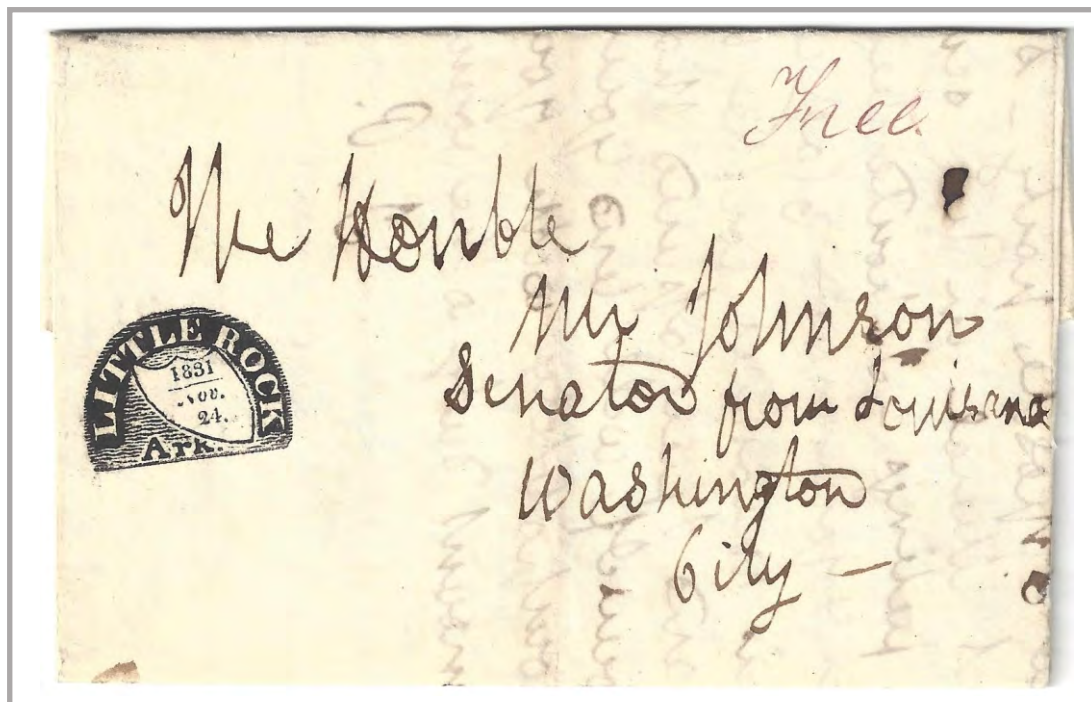 Free
The Honble
Mr Johnson
Senator from Louisiana
Washington
City —
LITTLE ROCK
1831
Nov.
24.
Ark.